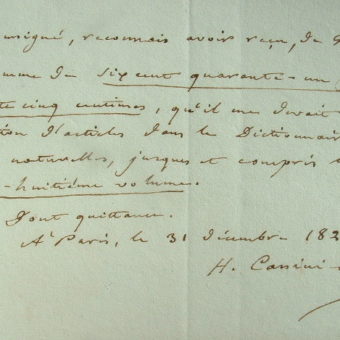 soussigné, reconnais avoir reçu, de
somme de six cent quarante-un
te cinq centimes, qu'il me devait
tion d'articles dans le Dictionnair
naturelles, jusques et compris
-huitième volume.
Dont quittance.
A Paris, le 31 décembre 182
H. Cassini